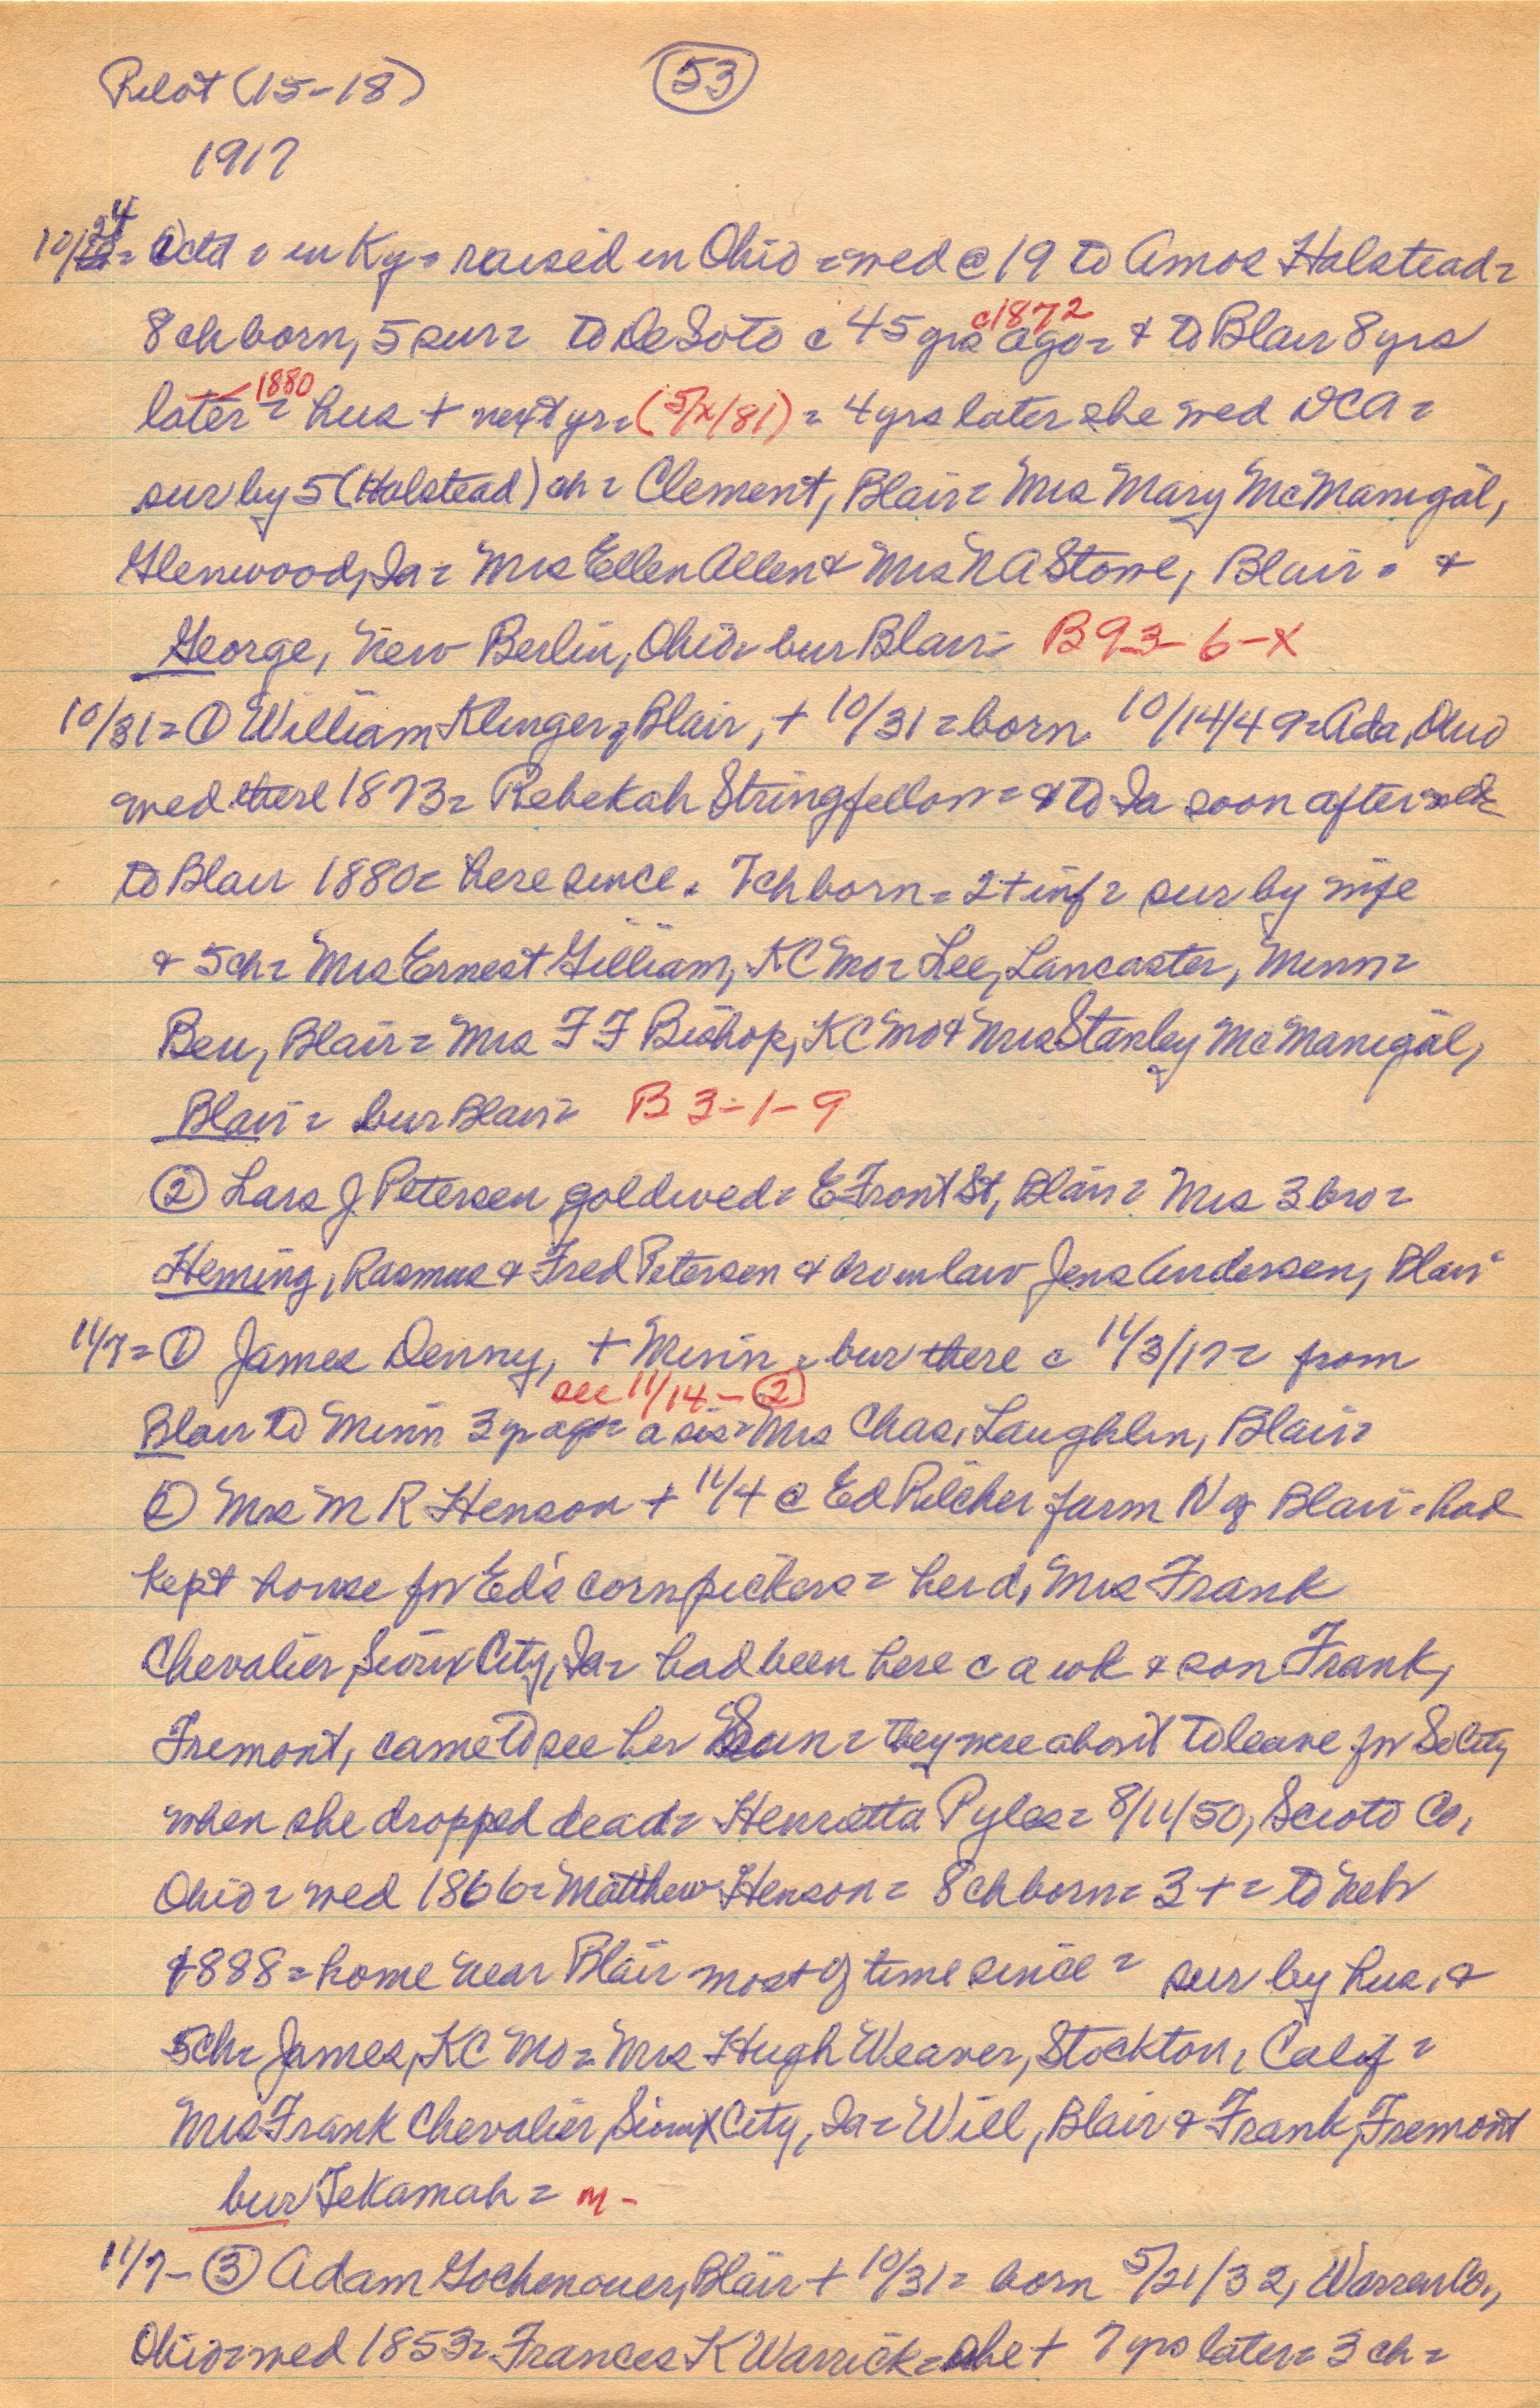 Pilot (15-18)
53
1917
10/24 = ① ctd = in Ky = raised in Ohio = wed @ 19 to Amos Halstead =
8 ch born, 5 sur = to DeSoto c 45 yrs ago = & to Blair 8 yrs
c1872
later = hus + next yr = (5/x/81) = 4 yrs later she wed DCA =
1880
sur by 5 (Halstead) ch = Clement, Blair = Mrs Mary McManigal,
Glenwood, Ia = Mrs Ellen Allen & Mrs N A Stowe, Blair = &
George, New Berlin, Ohio = bur Blair = B 93-6-X
10/31 = ① William Klinger, Blair, + 10/31 = born 10/14/49 = Ada, Ohio
wed there 1873 = Rebekah Stringfellow = & to Ia soon after wed =
to Blair 1880 = here since. 7 ch born = 2 + inf = sur by wife
& 5 ch = Mrs Ernest Gilliam, KC Mo = Lee, Lancaster, Minn =
Ben, Blair = Mrs F F Bishop, KC Mo & Mrs Stanley McManigal,
Blair = bur Blair = B 3-1-9
② Lars J Petersen gold wed = E Front St, Blair = Mrs 3 bro =
Heming, Rasmus & Fred Petersen & bro in law Jens Andersen, Blair
11/7 = ① James Denny, + Minn = bur there c 11/3/17 = from
see 11/14 - ②
Blair to Minn 3 yr ago = a sis = Mrs Chas. Laughlin, Blair =
② Mrs M R Henson + 11/4 @ Ed Pilcher farm N of Blair = had
kept house for Ed's cornpickers = her d, Mrs Frank
Chevalier, Sioux City, Ia = had been here c a wk & son Frank,
Fremont, came to see her Sun = they were about to leave for So City
when she dropped dead = Henrietta Pyles = 8/11/50, Scioto Co,
Ohio = wed 1866 = Matthew Henson = 8 ch born = 3 + = to Neb
1888 = home near Blair most of time since = sur by hus, &
5 ch = James, KC Mo = Mrs Hugh Weaver, Stockton, Calif =
Mrs Frank Chevalier, Sioux City, Ia = Will, Blair & Frank, Fremont
bur Tekamah = M -
11/7 - ③ Adam Gochenouer, Blair + 10/31 = born 5/21/32, Warren Co.,
Ohio = wed 1853 = Frances K Warrick = she + 7 yrs later = 3 ch =